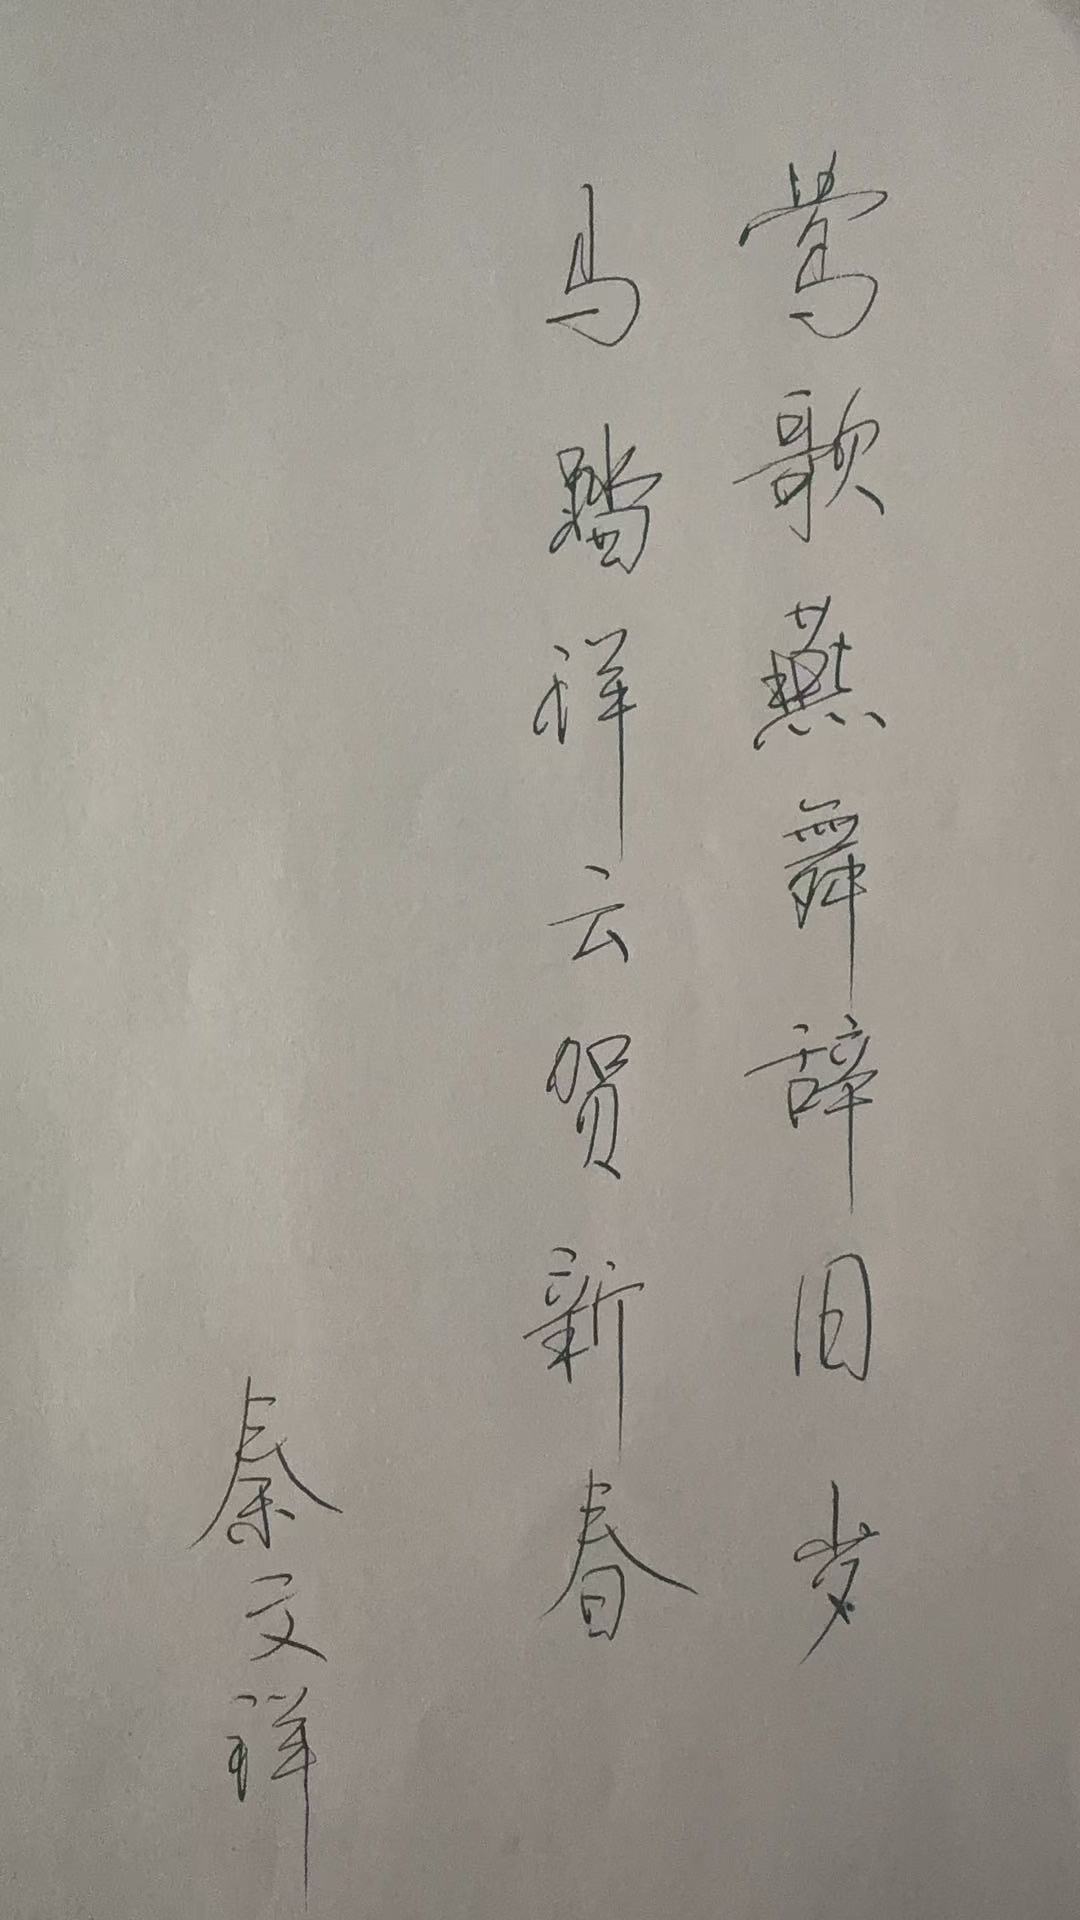 莺歌燕舞辞旧岁
马踏祥云贺新春
秦文祥